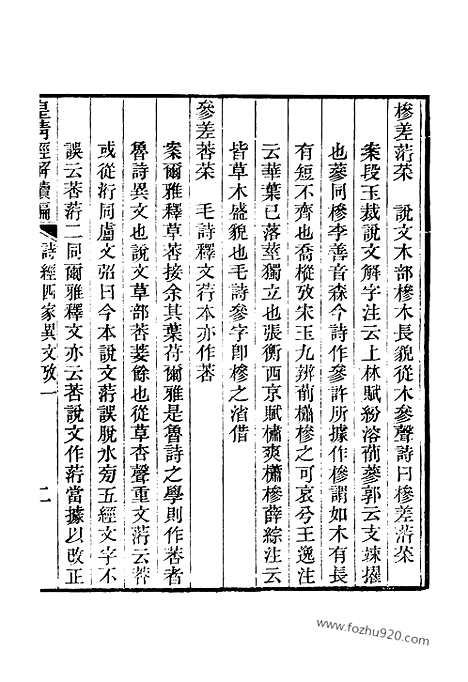 槮差䓷菜　說文木部槮木長貌從木參聲詩曰槮差䓷菜
案段玉裁說文解字注云上林賦紛溶萷蔘郭云支竦擢
也蔘同槮李善音森今詩作參許所據作槮謂如木有長
有短不齊也喬樅攷宋玉九辨萷櫹槮之可哀兮王逸注
云華葉已落莖獨立也張衡西京賦橚爽櫹槮薛綜注云
皆草木盛貌也毛詩參字卽槮之渻借
參差荅菜　毛詩釋文荇本亦作莕
案爾雅釋草莕接余其葉苻爾雅是魯詩之學則作莕者
魯詩異文也說文草部莕萲餘也從草杏聲重文䓷云莕
或從洐同盧文弨曰今本說文䓷誤脫水旁五經文字不
誤云莕䓷二同爾雅釋文亦云莕說文作䓷當據以改正
皇淸經解續編
詩經四家異文攷一
二
www.fozhu920.com